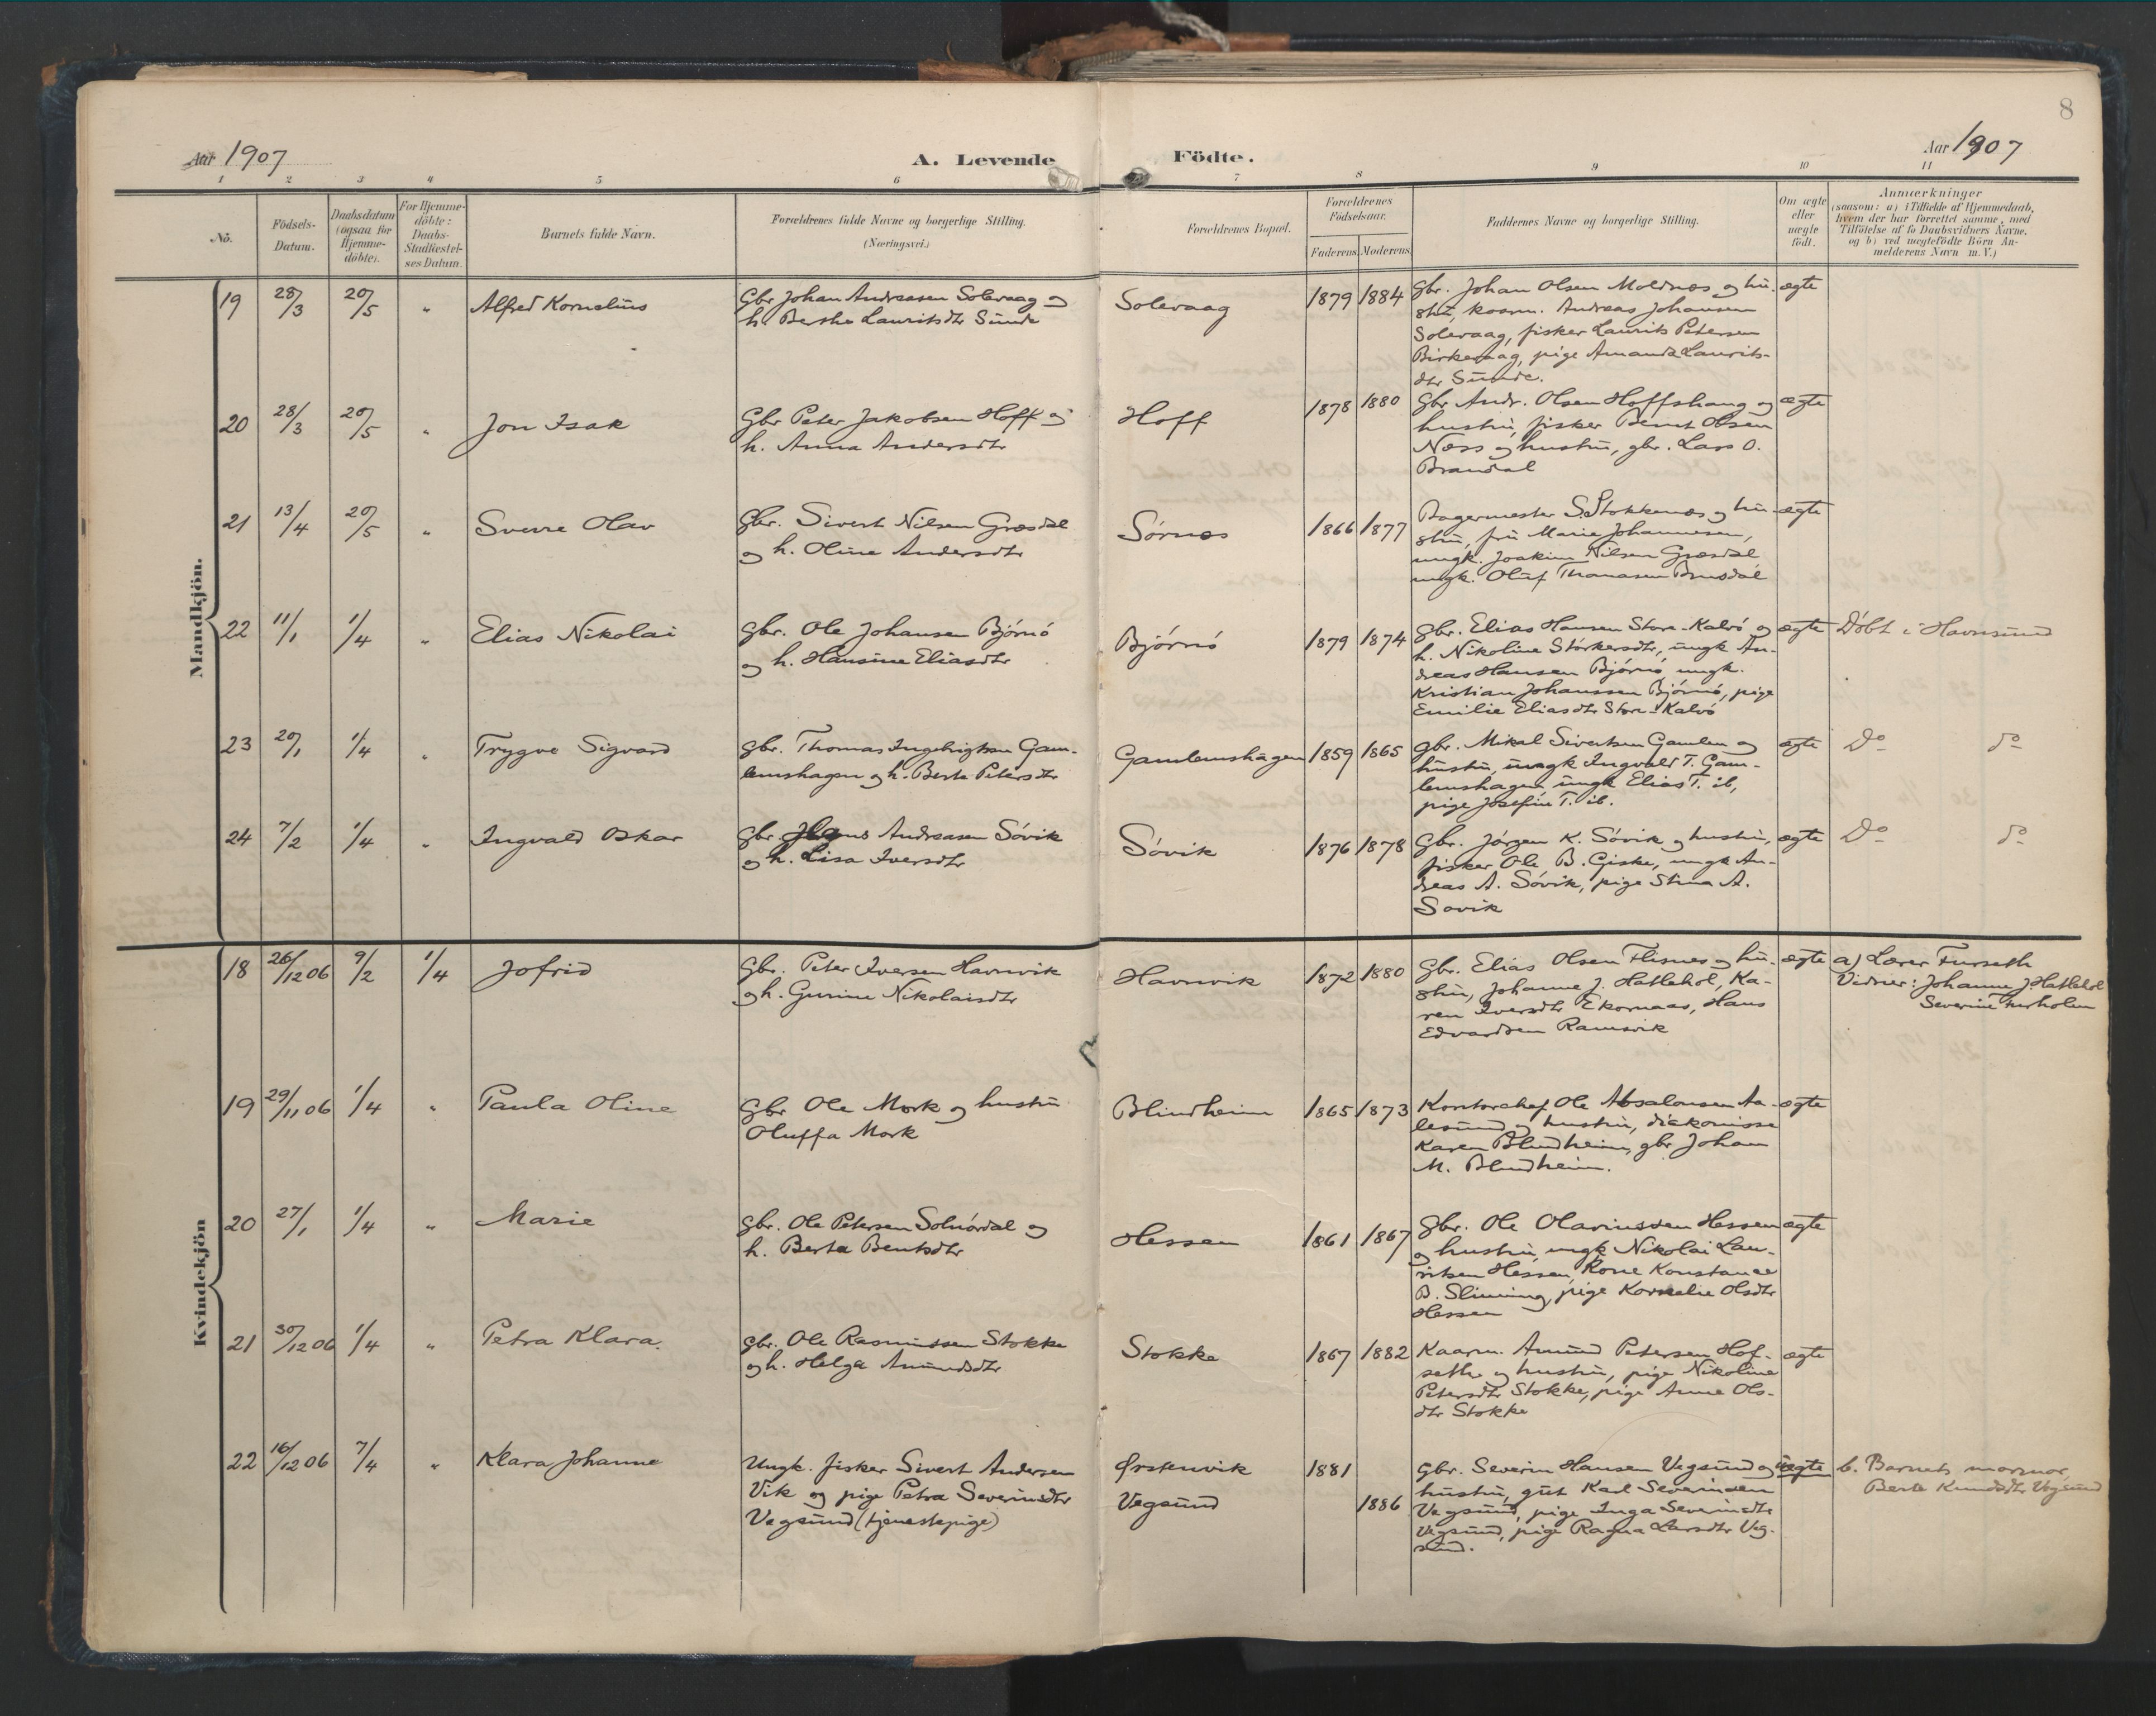 8
Aar 1907
A. Levende Födte.
Aar 1907
1 2 3 4 5 6 7 8 9 10 11
No.
Födsels-
Datum.
Daabsdatum
(ogsaa for
Hjemme-
döbte).
For Hjemme-
döbte:
Daabs-
Stadfæstel-
ses Datum.
Barnets fulde Navn.
Forældrenes fulde Navne og borgerlige Stilling.
(Næringsvei.)
Forældrenes Bopæl.
Forældrenes
Födselsaar.
Faderens. Moderens.
Faddernes Navne og borgerlige Stilling.
Om ægte
eller
uægte
födt.
Anmærkninger
(saasom: a) i Tilfælde af Hjemmedaab,
hvem der har forrettet samme, med
Tilföielse af to Daabsvidners Navne,
og b) ved uægtefödte Börn An-
melderens Navn m. V.)
Mandkjön.
19 28/3 20/5 " Alfred Kornelius
Gbr. Johan Andreasen Solevaag og
h. Berthe Lauritsdtr Sunde
Solevaag 1879 1884
Gbr. Johan Olsen Moldnæs og hu-
stru, kaarm. Andreas Johansen
Solevaag, fisker Laurits Petersen
Birkevaag, pige Amanda Laurits-
dtr Sunde.
ægte
20 28/3 20/5 " Jon Isak
Gbr Peter Jakobsen Hoff og
h. Anna Andersdtr
Hoff 1878 1880
Gbr Andr. Olsen Hoffshaug og
hustru, fisker Bernt Olsen
Næss og hustru, gbr. Lars O.
Brandal
ægte
21 13/4 20/5 " Sverre Olav
Gbr. Sivert Nilsen Græsdal
og h. Oline Andersdtr
Sørnes 1866 1877
Bagermester S. Stokkenæs og hu-
stru, fru Marie Johannesen,
ungk. Joakim Nilsen Græsdal
ungk. Oluf Thomasen Brusdal
ægte
22 11/1 1/4 " Elias Nikolai
Gbr. Ole Johansen Bjørnø
og h. Hansine Eliasdtr
Bjørnø 1879 1874
Gbr. Elias Hansen Store-Kalvø og
h. Nikoline Størkersdtr, ungk An-
dreas Hansen Bjørnø, ungk.
Kristian Johanssen Bjørnø, pige
Emilie Eliasdtr Store-Kalvø
ægte
Døbt i Havnsund
23 20/1 1/4 " Trygve Sigvard
gbr. Thomas Ingebrigtsen Gam-
lemshagen og h. Berte Petersdtr
Gamlemshagen 1859 1865
gbr. Mikal Sivertsen Gamlem og
hustru, ungk Ingvald T. Gam-
lemshagen, ungk Elias T. ib,
pige Josefine T. ib.
ægte
Do do
24 7/2 1/4 " Ingvald Oskar
gbr. Hans Andreasen Søvik
og h. Lisa Iversdtr
Søvik 1876 1878
Gbr. Jørgen K. Søvik og hustru,
fisker Ole B. Giske, ungk An-
dreas A. Søvik, pige Stina A.
Søvik
ægte
Do do
Kvindekjön
18 26/12 06 9/2 1/4 Jofrid
Gbr. Peter Iversen Havnvik
og h. Gurine Nikolaisdtr
Havnvik 1872 1880
Gbr. Elias Olsen Flisnes og hu-
stru, Johanne J. Hatlehol, Ka-
ren Iversdtr Ekornaas, Hans
Edvardsen Ramsvik
ægte
a) Lærer Furseth
Vidner: Johanne J. Hatlehol
Severine Furholm
19 29/11 06 1/4 " Paula Oline
Gbr Ole Mork og hustru
Oluffa Mork
Blindheim 1865 1873
Kontorchef Ole Absalonsen Aa-
lesund og hustru, diakonisse
Karen Blindheim, gbr Johan
M. Blindheim.
ægte
20 27/1 1/4 " Marie
Gbr. Ole Petersen Solnørdal og
h. Berta Bentsdtr
Hessen 1861 1867
Gbr. Ole Olavinussen Hessen
og hustru, ungk Nikolai Lau-
ritsen Hessen, Kone Konstance
B. Slinning, pige Kornelie Olsdtr
Hessen
ægte
21 30/12 06 1/4 " Petra Klara.
gbr. Ole Rasmussen Stokke
og h. Helga Amundsdtr
Stokke 1867 1882
Kaarm. Amund Petersen Hof-
seth og hustru, pige Nikoline
Petersdtr Stokke, pige Anne Ols-
dtr Stokke
ægte
22 16/12 06 7/4 " Klara Johanne
Ungk. fisker Sivert Andersen
Vik og pige Petra Severinsdtr
Vegsund (tjenestepige)
Ørstenvik 1881
Vegsund 1886
Gbr. Severin Hansen Vegsund og
hustru, gut Karl Severinsen
Vegsund, pige Inga Severinsdtr
Vegsund, pige Ragna Larsdtr Veg-
sund.
uægte
b. Barnets mormor,
Berte Knudsdtr Vegsund